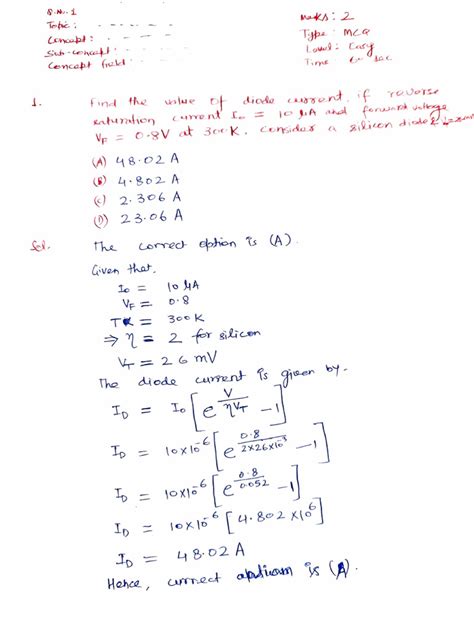 S.No. 1
Marks : 2
Topic :
Type : MCQ
Concept :
Level : Easy
Sub-concept :
Time
sec
Concept field
1. Find the value of diode current, if reverse
saturation current I₀ = 10 μA and forward voltage
V_F = 0.8V at 300K. Consider a silicon diode
(A) 48.02 A
(B) 4.802 A
(C) 2.306 A
(D) 23.06 A
Sol. The correct option is (A).
Given that,
I₀ = 10 μA
V_F = 0.8
T = 300K
⇒ η = 2 for silicon
V_T = 26 mV
The diode current is given by.
I_D = I₀ [e^(V/ηV_T) - 1]
I_D = 10×10⁻⁶ [e^(0.8/2×26×10⁻³) - 1]
I_D = 10×10⁻⁶ [e^(0.8/0.052) - 1]
I_D = 10×10⁻⁶ [4.802×10⁶]
I_D = 48.02 A
Hence, correct is (A).